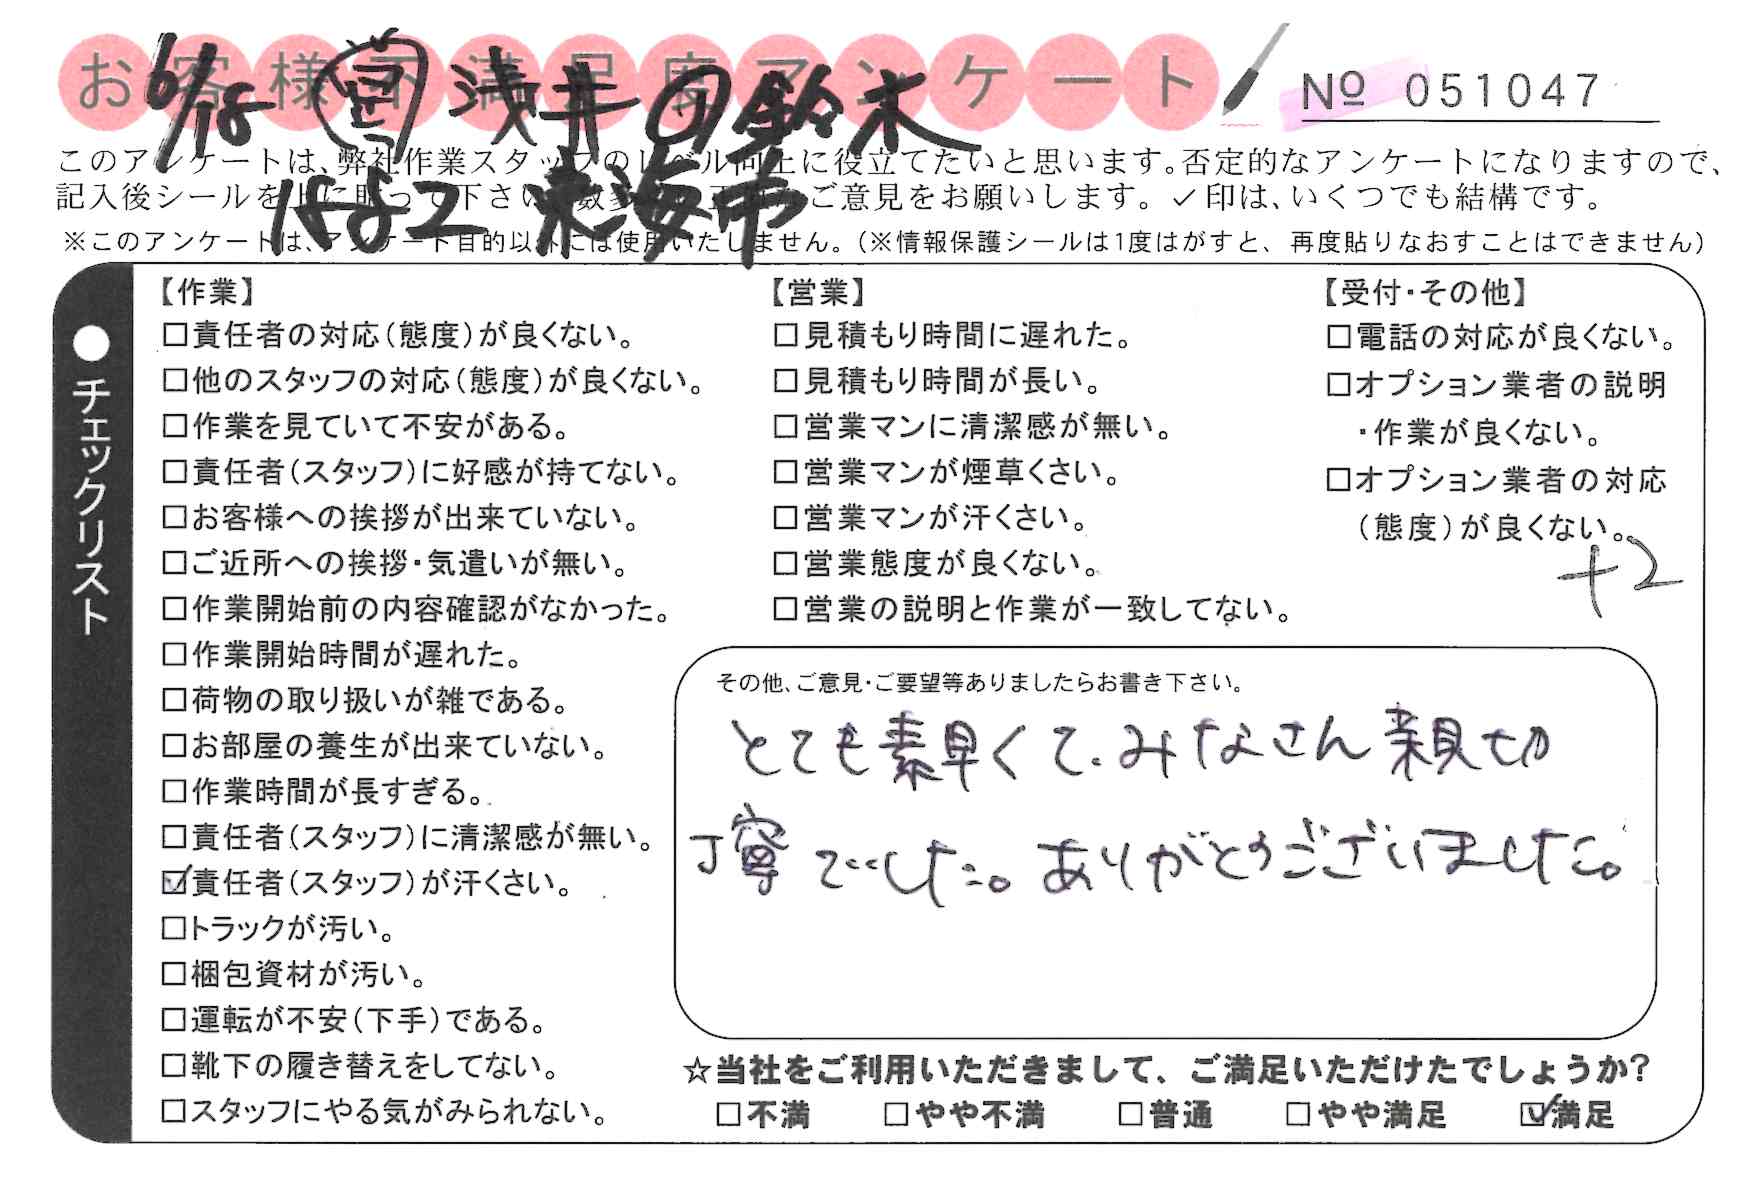 お客様不満足度アンケート
№ 051047
6/18 浅井 鈴木
東海市
このアンケートは、弊社作業スタッフのレベル向上に役立てたいと思います。否定的なアンケートになりますので、
記入後シールを上に貼って下さい。ご意見をお願いします。✓印は、いくつでも結構です。
※このアンケートは、アンケート目的以外には使用いたしません。(※情報保護シールは1度はがすと、再度貼りなおすことはできません)
●チェックリスト
【作業】
□責任者の対応(態度)が良くない。
□他のスタッフの対応(態度)が良くない。
□作業を見ていて不安がある。
□責任者(スタッフ)に好感が持てない。
□お客様への挨拶が出来ていない。
□ご近所への挨拶・気遣いが無い。
□作業開始前の内容確認がなかった。
□作業開始時間が遅れた。
□荷物の取り扱いが雑である。
□お部屋の養生が出来ていない。
□作業時間が長すぎる。
□責任者(スタッフ)に清潔感が無い。
☑責任者(スタッフ)が汗くさい。
□トラックが汚い。
□梱包資材が汚い。
□運転が不安(下手)である。
□靴下の履き替えをしてない。
□スタッフにやる気がみられない。
【営業】
□見積もり時間に遅れた。
□見積もり時間が長い。
□営業マンに清潔感が無い。
□営業マンが煙草くさい。
□営業マンが汗くさい。
□営業態度が良くない。
□営業の説明と作業が一致してない。
【受付・その他】
□電話の対応が良くない。
□オプション業者の説明
・作業が良くない。
□オプション業者の対応
(態度)が良くない。
+2
その他、ご意見・ご要望等ありましたらお書き下さい。
とても素早くて、みなさん親切
丁寧でした。ありがとうございました。
☆当社をご利用いただきまして、ご満足いただけたでしょうか?
□不満 □やや不満 □普通 □やや満足 ☑満足